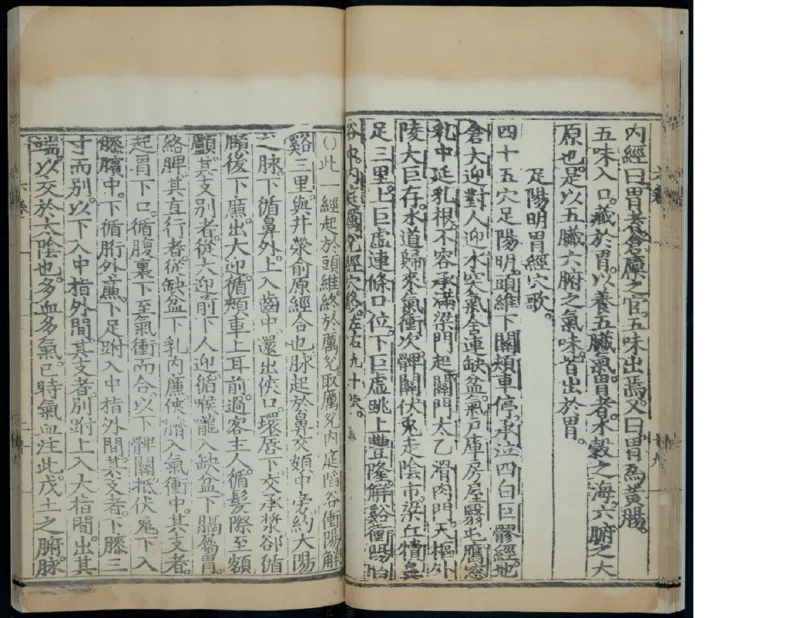 內經曰胃者倉廩之官五味出焉又曰胃爲黃腸
五味入口藏於胃以養五臟氣胃者水穀之海六腑之大
原也是以五臟六腑之氣味皆出於胃
足陽明胃經穴歌
四十五穴足陽明頭維下關頰車停承泣四白巨髎經地
倉大迎對人迎水突氣舍連缺盆氣戶庫房屋翳屯膺窓
乳中延乳根不容承滿梁門起關門太乙滑肉門天樞外
陵大巨存水道歸來氣衝次髀關伏兎走陰市梁丘犢鼻
足三里上巨虛連條口位下巨虛跳上豐隆解谿衝陽陷
谷中內庭厲兌經穴終左右九十穴
〇此一經起於頭維終於厲兌取厲兌內庭陷谷衝陽解
谿三里與井滎俞原經合也脉起於鼻交頞中旁約太陽
之脉下循鼻外上入齒中還出俠口環唇下交承漿卻循
頤後下廉出大迎循頰車上耳前過客主人循髮際至額
顱其支別者從大迎前下人迎循喉嚨入缺盆下膈屬胃
絡脾其直行者從缺盆下乳內廉俠臍入氣衝中其支者
起胃下口循腹裏下至氣衝而合以下髀關抵伏兎下入
膝臏中下循胻外廉下足跗入中指外間其支者下膝三
寸而別以下入中指外間其支者別跗上入大指間出其
端以交於太陰也多血多氣巳時氣血注此戊土之腑脉